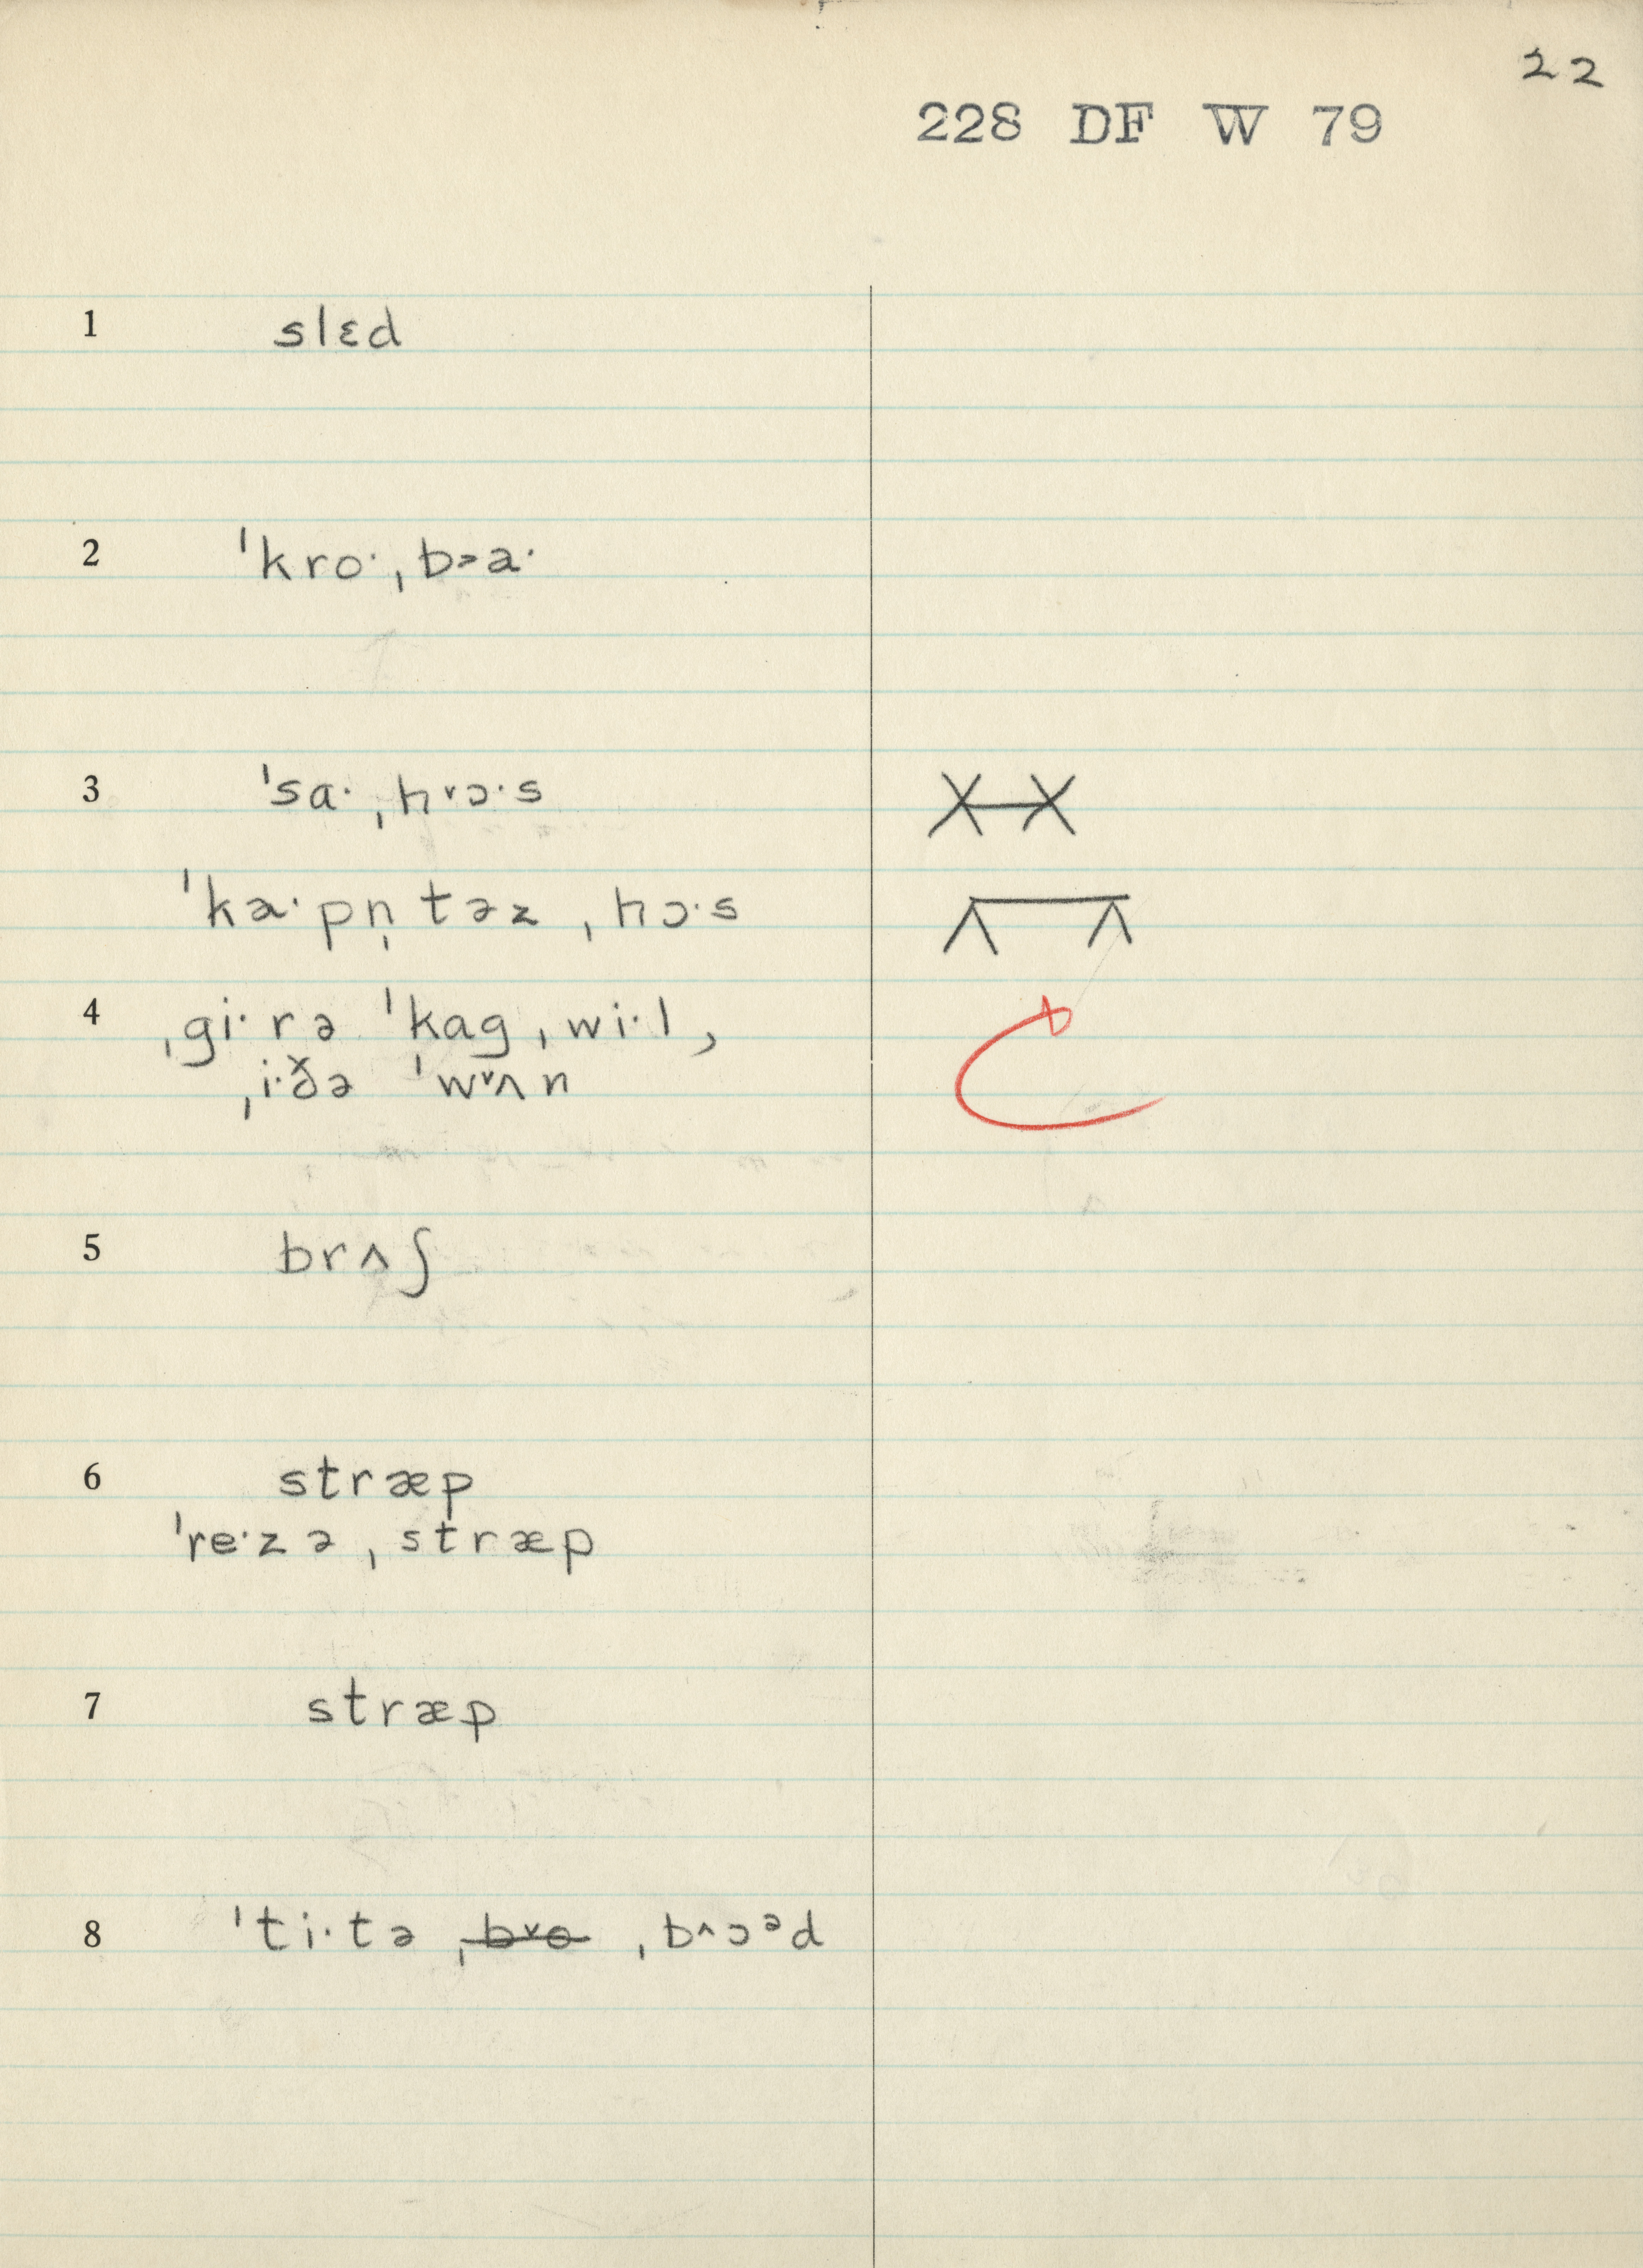 22
228 DF W 79
1 slɛd
2 ˈkroˑˌb˃aˑ
3 ˈsaˑˌh˅ɔˑs
ˈkaˑpn̩təzˌhɔˑs
4 ˌgiˑrə ˈkagˌwiˑl,
ˌiˑðə ˈw˅ʌn
5 brʌʃ
6 stræp
ˈreˑzəˌstræp
7 stræp
8 ˈtiˑtə ˌb˅o ˌb˄ɔᵊd